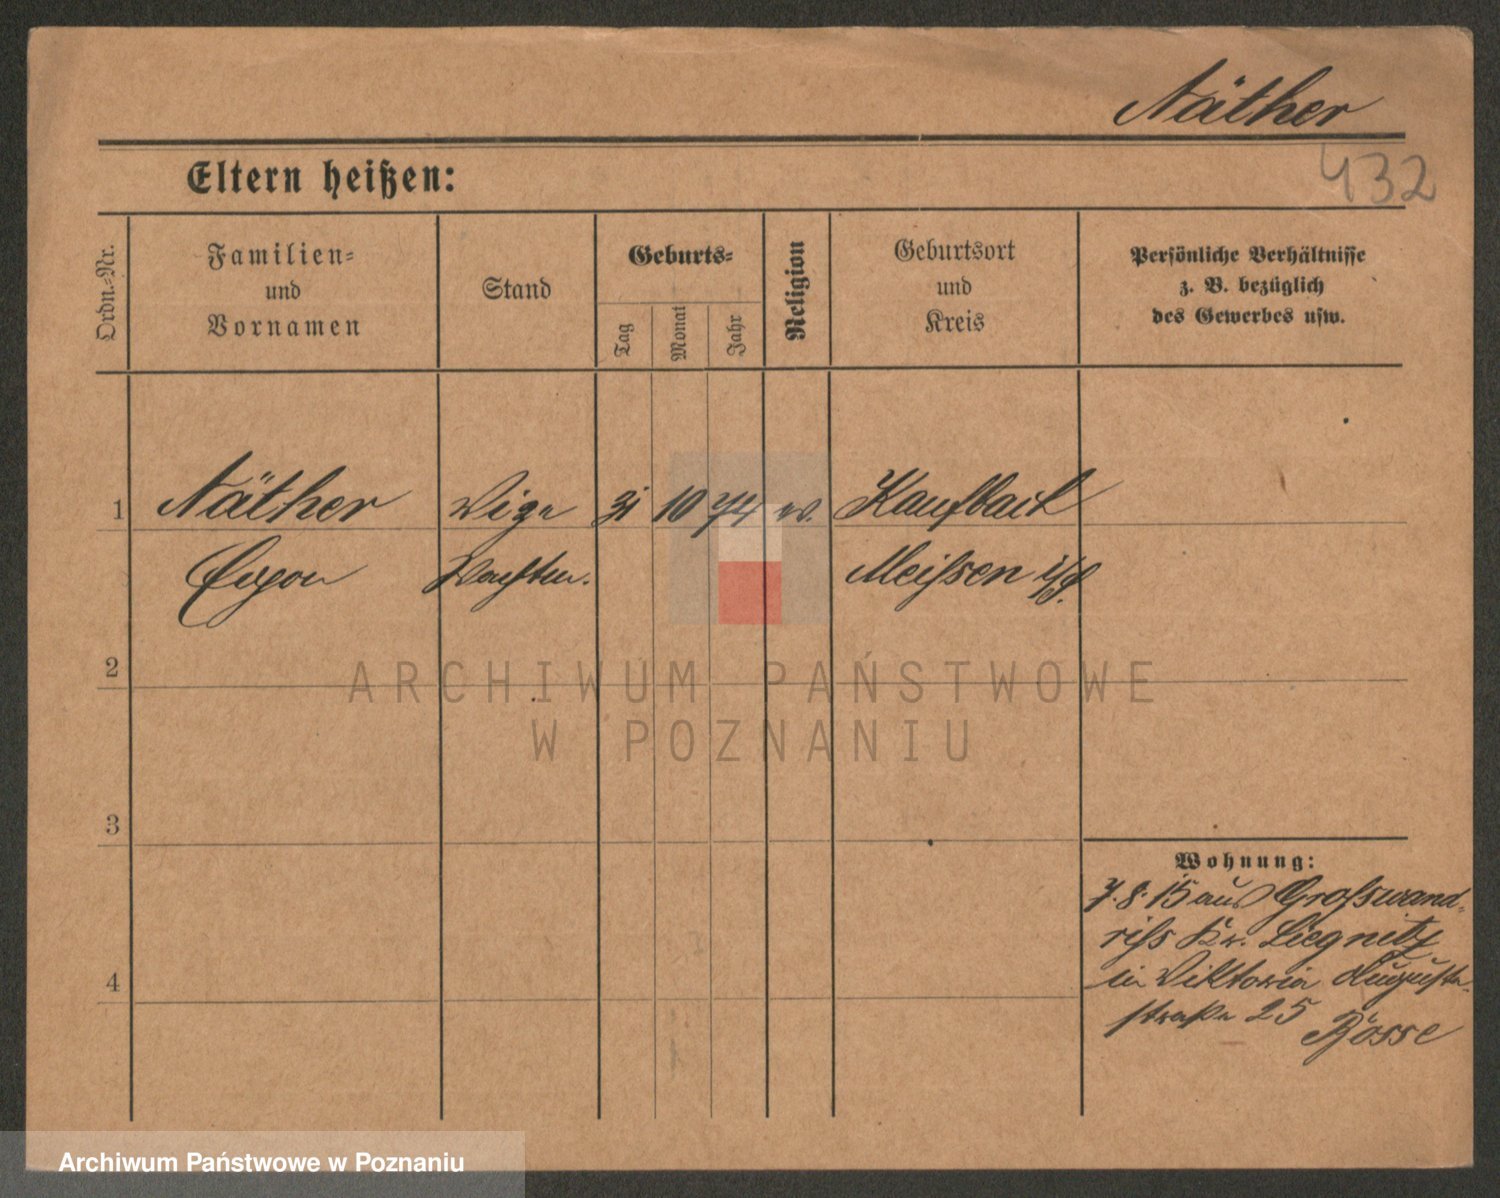 Näther
432
Eltern heißen:
Ordn.-Nr.
Familien-
und
Vornamen
Stand
Geburts-
Tag
Monat
Jahr
Religion
Geburtsort
und
Kreis
Persönliche Verhältnisse
z. B. bezüglich
des Gewerbes usw.
1
Näther Vize 31 10 74 ev. Kaufbach
Wachtm. Meißen i/S.
2
3
4
Wohnung:
7.8.15 aus Großwand-
riss Kr. Liegnitz
in Viktoria Augusta-
straße 25
ARCHIWUM PAŃSTWOWE
W POZNANIU
Archiwum Państwowe w Poznaniu